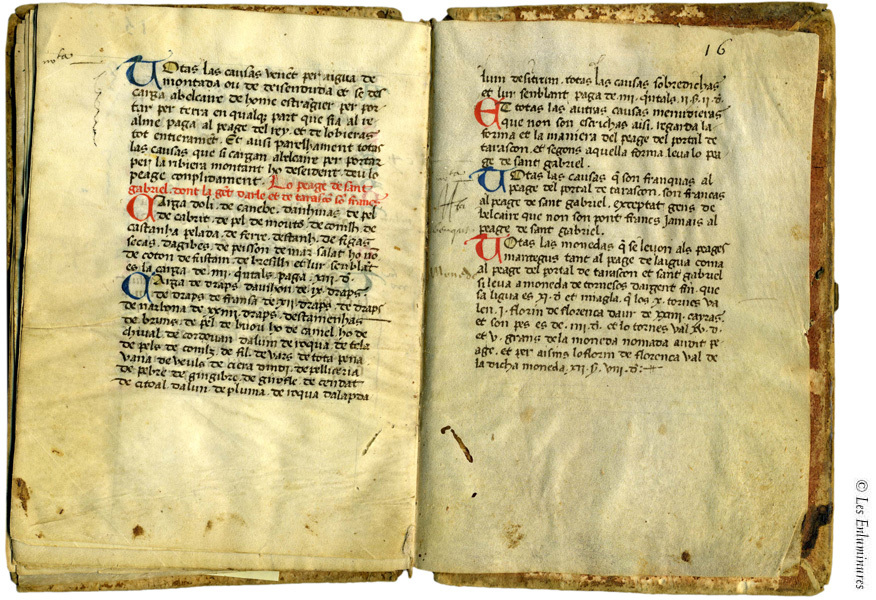 nota
Totas las causas venent per aigua de
montada ou de deisenduda et se des
carga abelcaire de home estragier per por
tar per terra en qualqz part que sia al re
alme paga al peage del rey. et de lobieras
tot entieramet. Et ausi pareilhament totas
las causas que si cargan abelcaire per portar
per la ribiera montant ho desident. deu lo
peage complidament. Lo peage de sant
gabriel. dont la get darle et de tarasco se franc
Carga doli. de canebe. danhinas de pel
de cabrit. de pel de mouto. de conilh. de
castanha pelada. de ferre. destanh. de figas
secas. dagibes. de peisson de mar salat ho
de coton. de fustain. de bresilh et lur senblat
es la carga de .iiij. quitals paga .xij. d.
Carga de draps davilhon de ix. draps.
de draps de fransa de xij. draps. de draps
de narbona de xxiiij. draps. destamenhas
de bruns. de pel de buou ho de camel ho de
chival. de cordouan. dalum de roqua. de tela
de pels. de conilz. de fil. de vars. de tota pena
vana. de veuls. de ciera. dindi. de pellicaria
de pebre. de gingibre. de girofle. de cendat
de citoal. dalum. de pluma. de roqua. dalapda
16
lum desitrim. totas las causas sobredichas
et lur senblant paga de .iiij. quitals .ij. s. ij. d.
Et totas las autras causas menudieras
que non son escrichas aisi. regarda la
forma et la maniera del peage del portal de
tarascon. et segons aquella forma leva lo pa
ge de sant gabriel.
Totas las causas q son franquas al
peage del portal de tarascon. son francas
al peage de sant gabriel. exceptat gens de
belcaire que non son pont francs jamais al
peage de sant gabriel.
Monede
Totas las monedas q se levon als peages
tant al peage de laigua coma
al peage del portal de tarascon et sant gabriel
si leva a moneda de tornesos dargent fin. que
sa liguea es xj. d. et miagla. q los x. tornes va
len .j. florin de florenca daur de xxiiij. cayras.
et son pes es de .iij. d. et lo tornes val xv. d.
et v. grans de la moneda nomada avdit pe
age. et per aisins lo florin de florenca val de
la dicha moneda. xij. s. viij. d.
© Les Enluminures